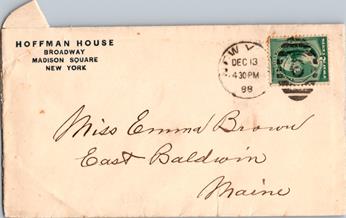 HOFFMAN HOUSE
BROADWAY
MADISON SQUARE
NEW YORK
W Y
DEC 13
430PM
88
Miss Emma Brown
East Baldwin
Maine